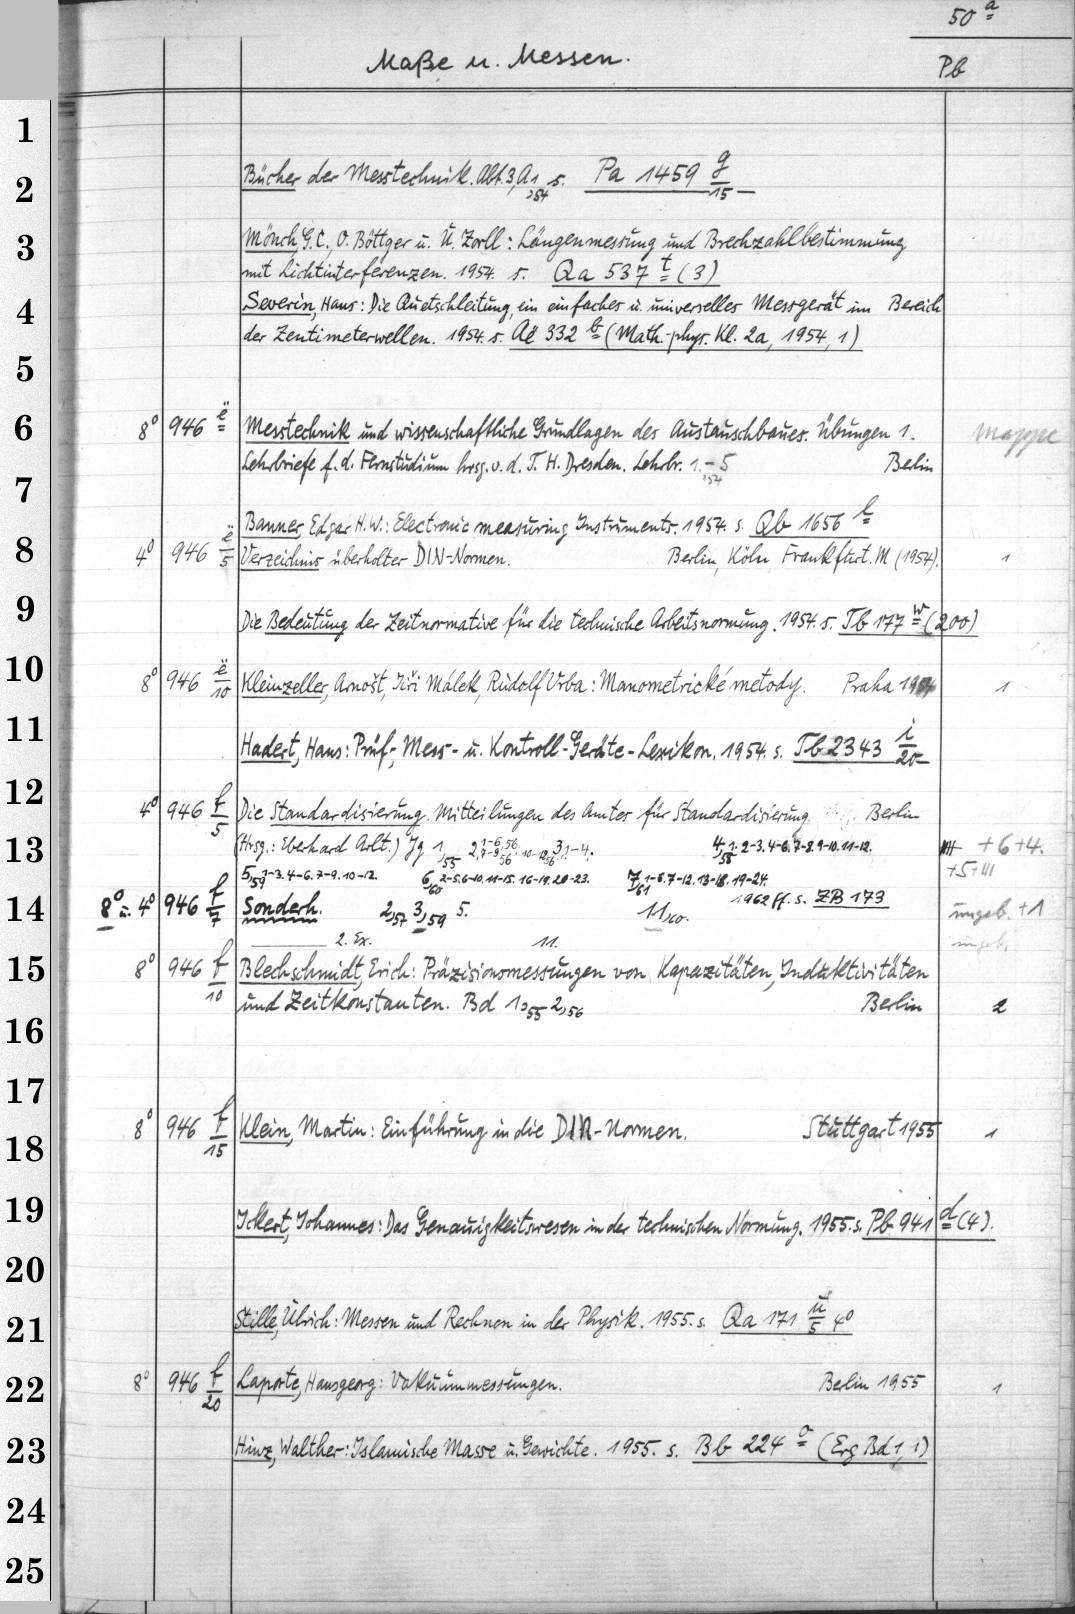 50 a
Maße u. Messen.
Pb
1
2
Bücher der Messtechnik. Abt. 3, A 1,54 s. Pa 1459 g/15
3
Mönch G. C., O. Böttger u. U. Zorll: Längenmessung und Brechzahlbestimmung
mit Lichtinterferenzen. 1954. s. Qa 537 t (3)
4
Severin, Hans: Die Quetschleitung, ein einfaches u. universelles Messgerät im Bereich
der Zentimeterwellen. 1954. s. Aë 332 b (Math.-phys. Kl. 2a, 1954, 1)
5
6
8° 946 ë Messtechnik und wissenschaftliche Grundlagen des Austauschbaues. Übungen 1. Mappe
Lehrbriefe f. d. Fernstudium hrsg. v. d. T. H. Dresden. Lehrbr. 1.,54 - 5 Berlin
7
Banner, Edgar H. W.: Electronic measuring Instruments. 1954. s. Qb 1656 l
8
4° 946 ë/5 Verzeichnis überholter DIN-Normen. Berlin, Köln, Frankfurt. M (1954). 1
9
Die Bedeutung der Zeitnormative für die technische Arbeitsnormung. 1954. s. Tb 177 w (200)
10
8° 946 ë/10 Kleinzeller, Arnošt, Jiři Málek, Rudolf Vrba: Manometrické metody. Praha 1954 1
11
Hadert, Hans: Prüf-, Mess- u. Kontroll-Geräte-Lexikon. 1954. s. Tb 2343 i/20
12
4° 946 f/5 Die Standardisierung. Mitteilungen des Amtes für Standardisierung Berlin
13
(Hrsg.: Eberhard Arlt.) Jg 1,55 2,1-6,56. 7-9,56. 10-12,56 3,1-4. 4,58 1. 2-3. 4-6. 7-8. 9-10. 11-12. + 6 + 4.
5,59 1-3. 4-6. 7-9. 10-12. 6,60 2-5. 6-10. 11-15. 16-19. 20-23. 7,61 1-6. 7-12. 13-18. 19-24. + 5 + III
1962 ff. s. ZB 173
14
8° u. 4° 946 f/7 Sonderh. 2,57 3,59 5. 11,60. ungeb. + 1
2. Ex. 11. ungeb.
15
8° 946 f/10 Blechschmidt, Erich: Präzisionsmessungen von Kapazitäten, Induktivitäten
und Zeitkonstanten. Bd 1,55 2,56 Berlin 2
16
17
18
8° 946 f/15 Klein, Martin: Einführung in die DIN-Normen. Stuttgart 1955 1
19
Ickert, Johannes: Das Genauigkeitswesen in der technischen Normung. 1955. s. Pb 941 d (4).
20
21
Stille, Ulrich: Messen und Rechnen in der Physik. 1955. s. Qa 171 ü/5 4°
22
8° 946 f/20 Laporte, Hansgeorg: Vakuummessungen. Berlin 1955 1
23
Hinz, Walther: Islamische Masse u. Gewichte. 1955. s. Bb 224 o (Erg Bd 1, 1)
24
25